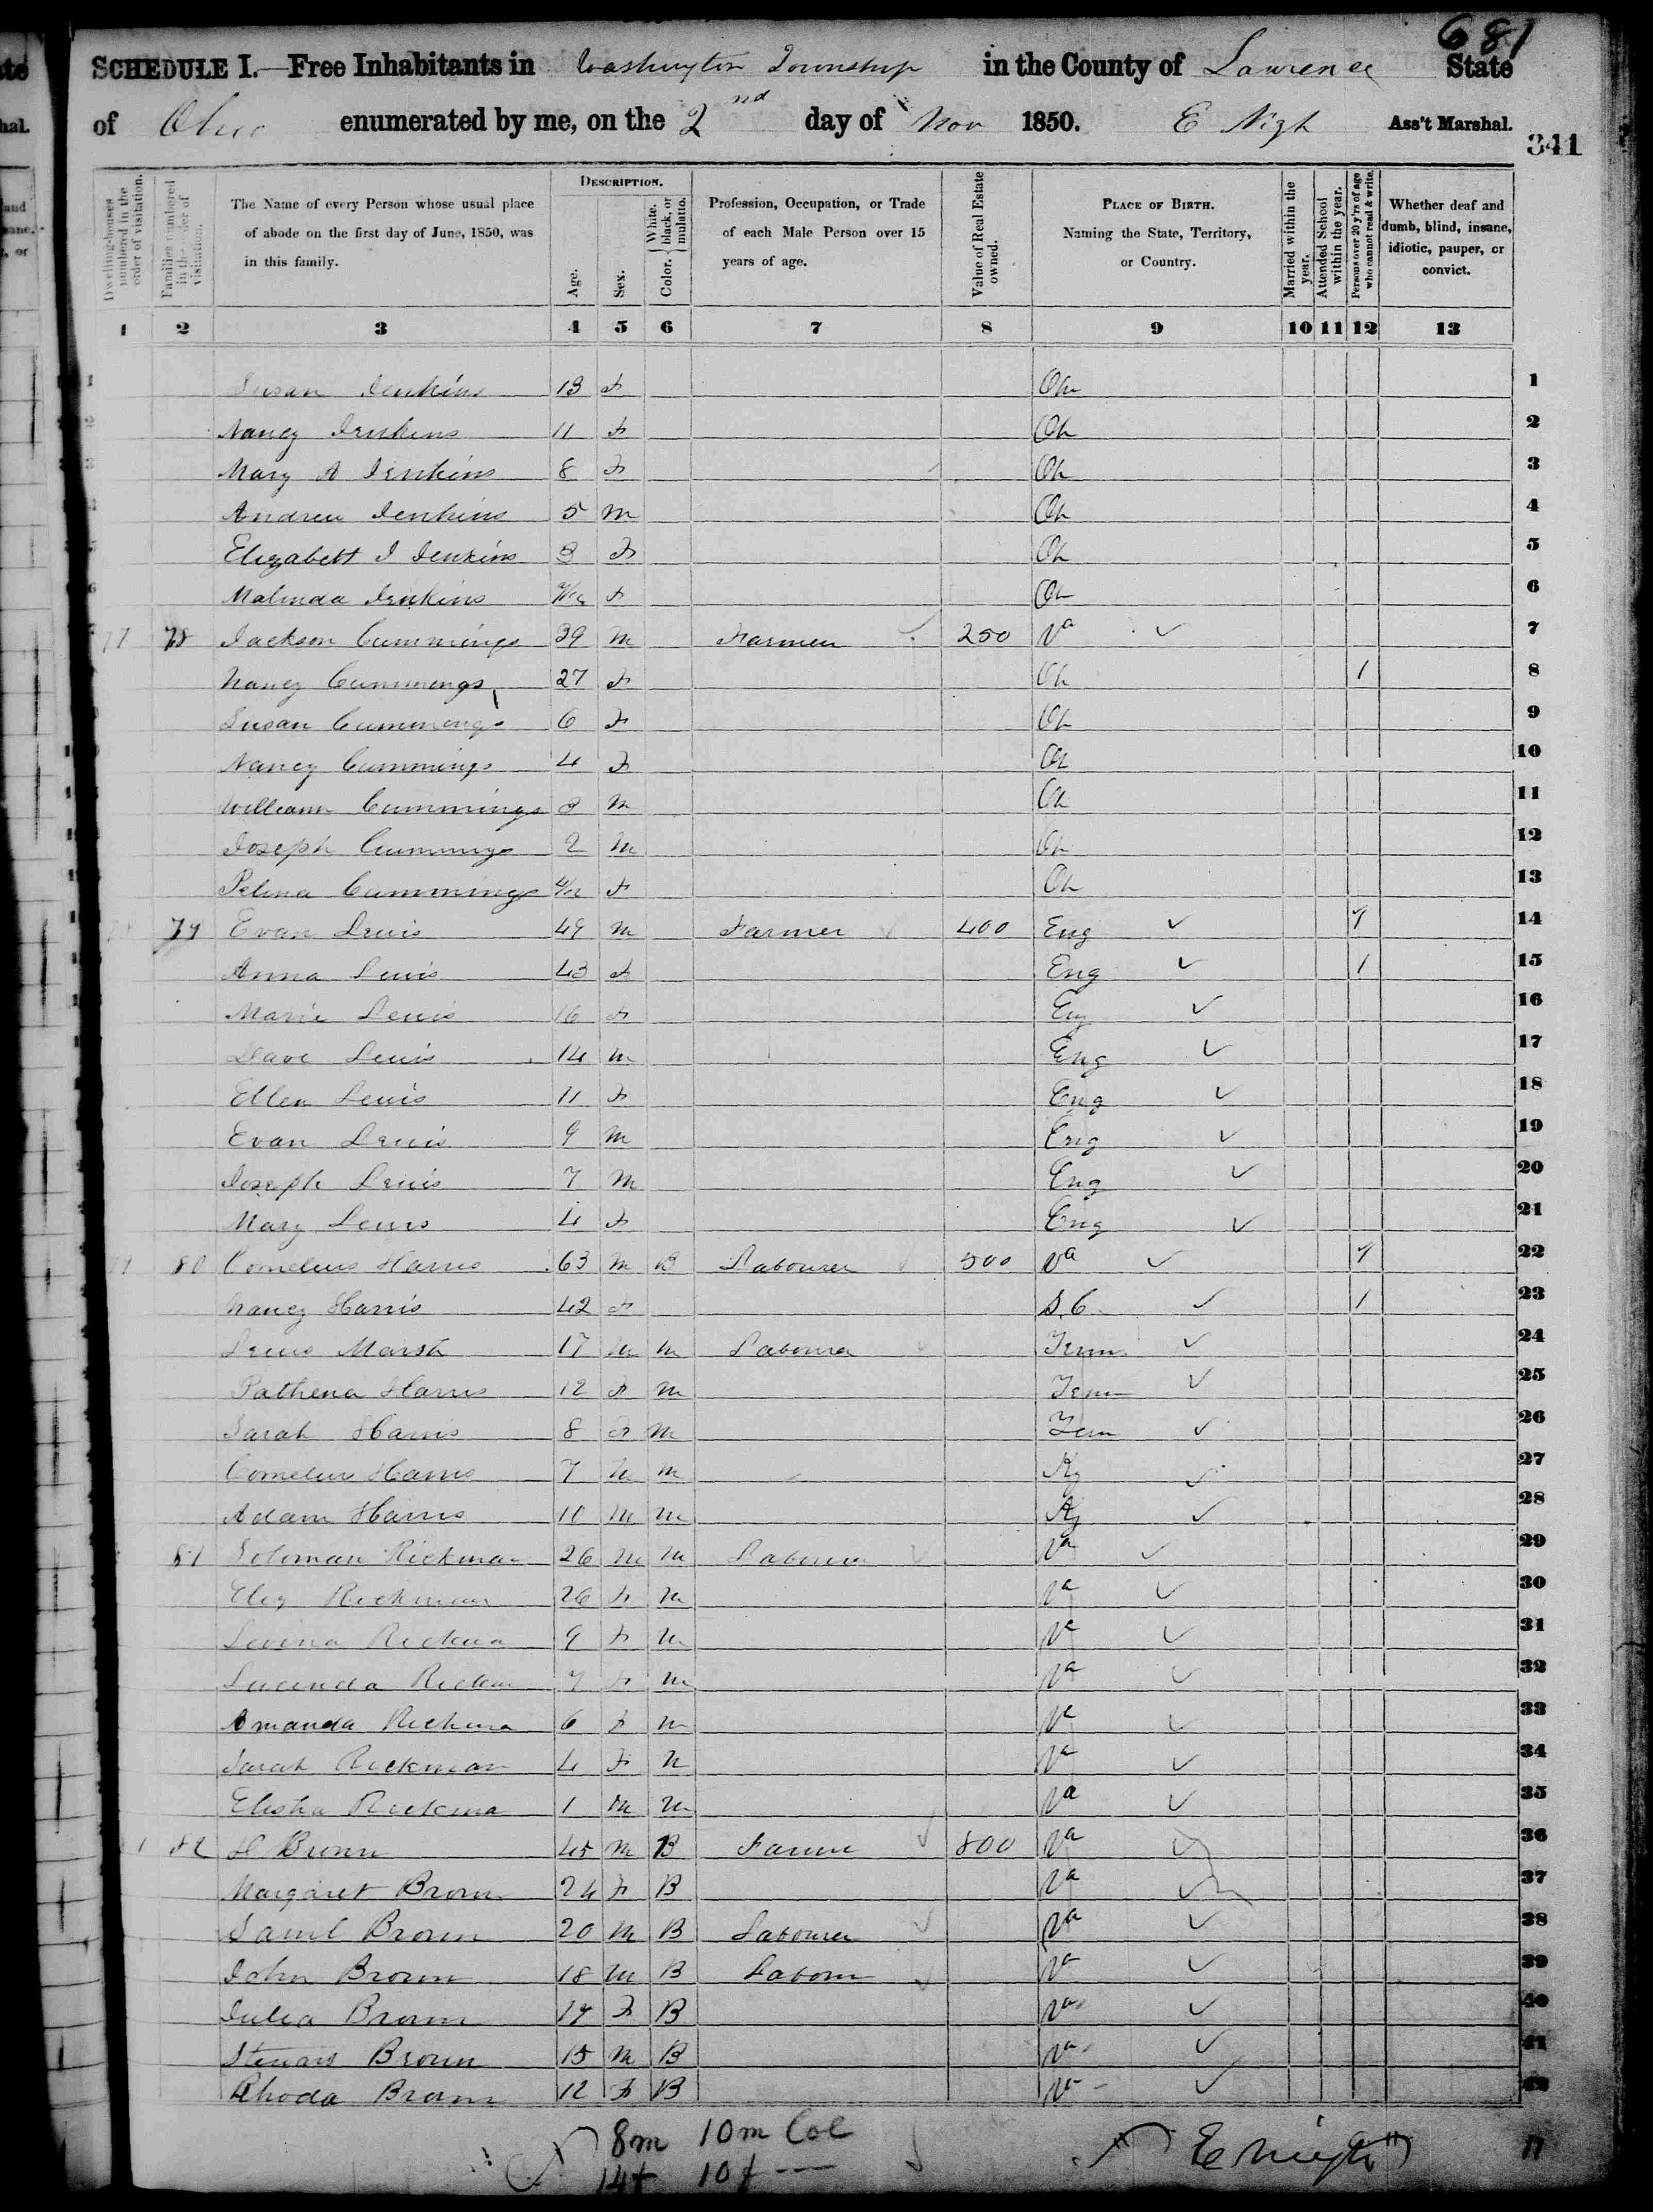 681
SCHEDULE I.—Free Inhabitants in Washington Township in the County of Lawrence State
of Ohio enumerated by me, on the 2nd day of Nov 1850. E Nigh Ass't Marshal.
341
Dwelling-houses numbered in the order of visitation.
Families numbered in the order of visitation.
The Name of every Person whose usual place of abode on the first day of June, 1850, was in this family.
DESCRIPTION.
Age.
Sex.
Color. White, black, or mulatto.
Profession, Occupation, or Trade of each Male Person over 15 years of age.
Value of Real Estate owned.
PLACE OF BIRTH. Naming the State, Territory, or Country.
Married within the year.
Attended School within the year.
Persons over 20 y'rs of age who cannot read & write.
Whether deaf and dumb, blind, insane, idiotic, pauper, or convict.
1 2 3 4 5 6 7 8 9 10 11 12 13
Susan Jenkins 13 F Oh 1
Nancy Jenkins 11 F Oh 2
Mary A Jenkins 8 F Oh 3
Andrew Jenkins 5 M Oh 4
Elizabett J Jenkins 3 F Oh 5
Malinda Jenkins F Oh 6
77 78 Jackson Cummings 39 M Farmer 250 Va ✓ 7
Nancy Cummings 27 F Oh 1 8
Susan Cummings 6 F Oh 9
Nancy Cummings 4 F Oh 10
William Cummings 3 M Oh 11
Joseph Cummings 2 M Oh 12
Pelina Cummings 4/12 F Oh 13
79 Evan Lewis 49 M Farmer 400 Eng ✓ 1 14
Anna Lewis 43 F Eng ✓ 1 15
Marie Lewis 16 F Eng ✓ 16
Dave Lewis 14 M Eng ✓ 17
Ellen Lewis 11 F Eng ✓ 18
Evan Lewis 9 M Eng ✓ 19
Joseph Lewis 7 M Eng ✓ 20
Mary Lewis 4 F Eng ✓ 21
79 80 Cornelius Harris 63 M B Labourer 500 Va ✓ 1 22
Nancy Harris 42 F S.C. ✓ 1 23
Lewis Marsh 17 M M Laboura Tenn ✓ 24
Pathena Harris 12 F M Tenn ✓ 25
Sarah Harris 8 F M Tenn ✓ 26
Cornelius Harris 7 M M Ky ✓ 27
Adam Harris 10 M M Ky ✓ 28
81 Soloman Rickman 26 M M Labourer Va ✓ 29
Eliz Rickman 26 F M Va ✓ 30
Levina Rickma 9 F M Va ✓ 31
Lucinda Rickm 7 F M Va ✓ 32
Amanda Rickma 6 F M Va ✓ 33
Sarah Rickman 4 F M Va ✓ 34
Elisha Rickma 1 M M Va ✓ 35
82 Brown 45 M B Farme 800 Va ✓ 36
Margaret Brown 24 F B Va ✓ 37
Saml Brown 20 M B Labourer Va ✓ 38
John Brown 18 M B Labour Va ✓ 39
Julia Brown 17 F B Va ✓ 40
Brown 15 M B Va ✓ 41
Rhoda Brown 12 F B Va ✓ 42
8m 10m Col
14f 10f
E Nigh